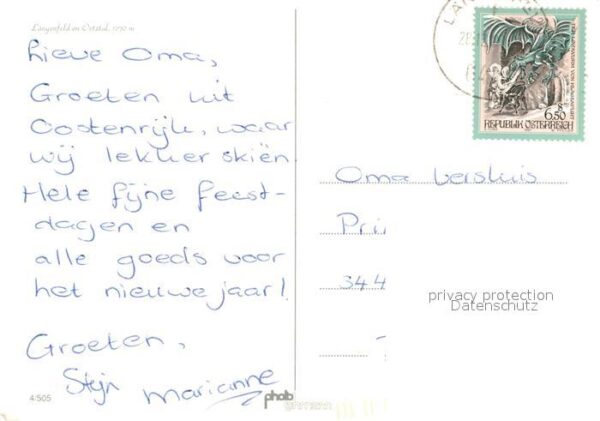 Längenfeld im Oetztal, 1180 m
Lieve Oma,
Groeten uit
Oostenrijk, waar
wij lekker skiën.
Hele fijne feest-
dagen en
alle goeds voor
het nieuwe jaar!
Groeten,
Stijn Marianne
4/505
6.50
REPUBLIK ÖSTERREICH
Oma Versluis
Pri
344
privacy protection
Datenschutz